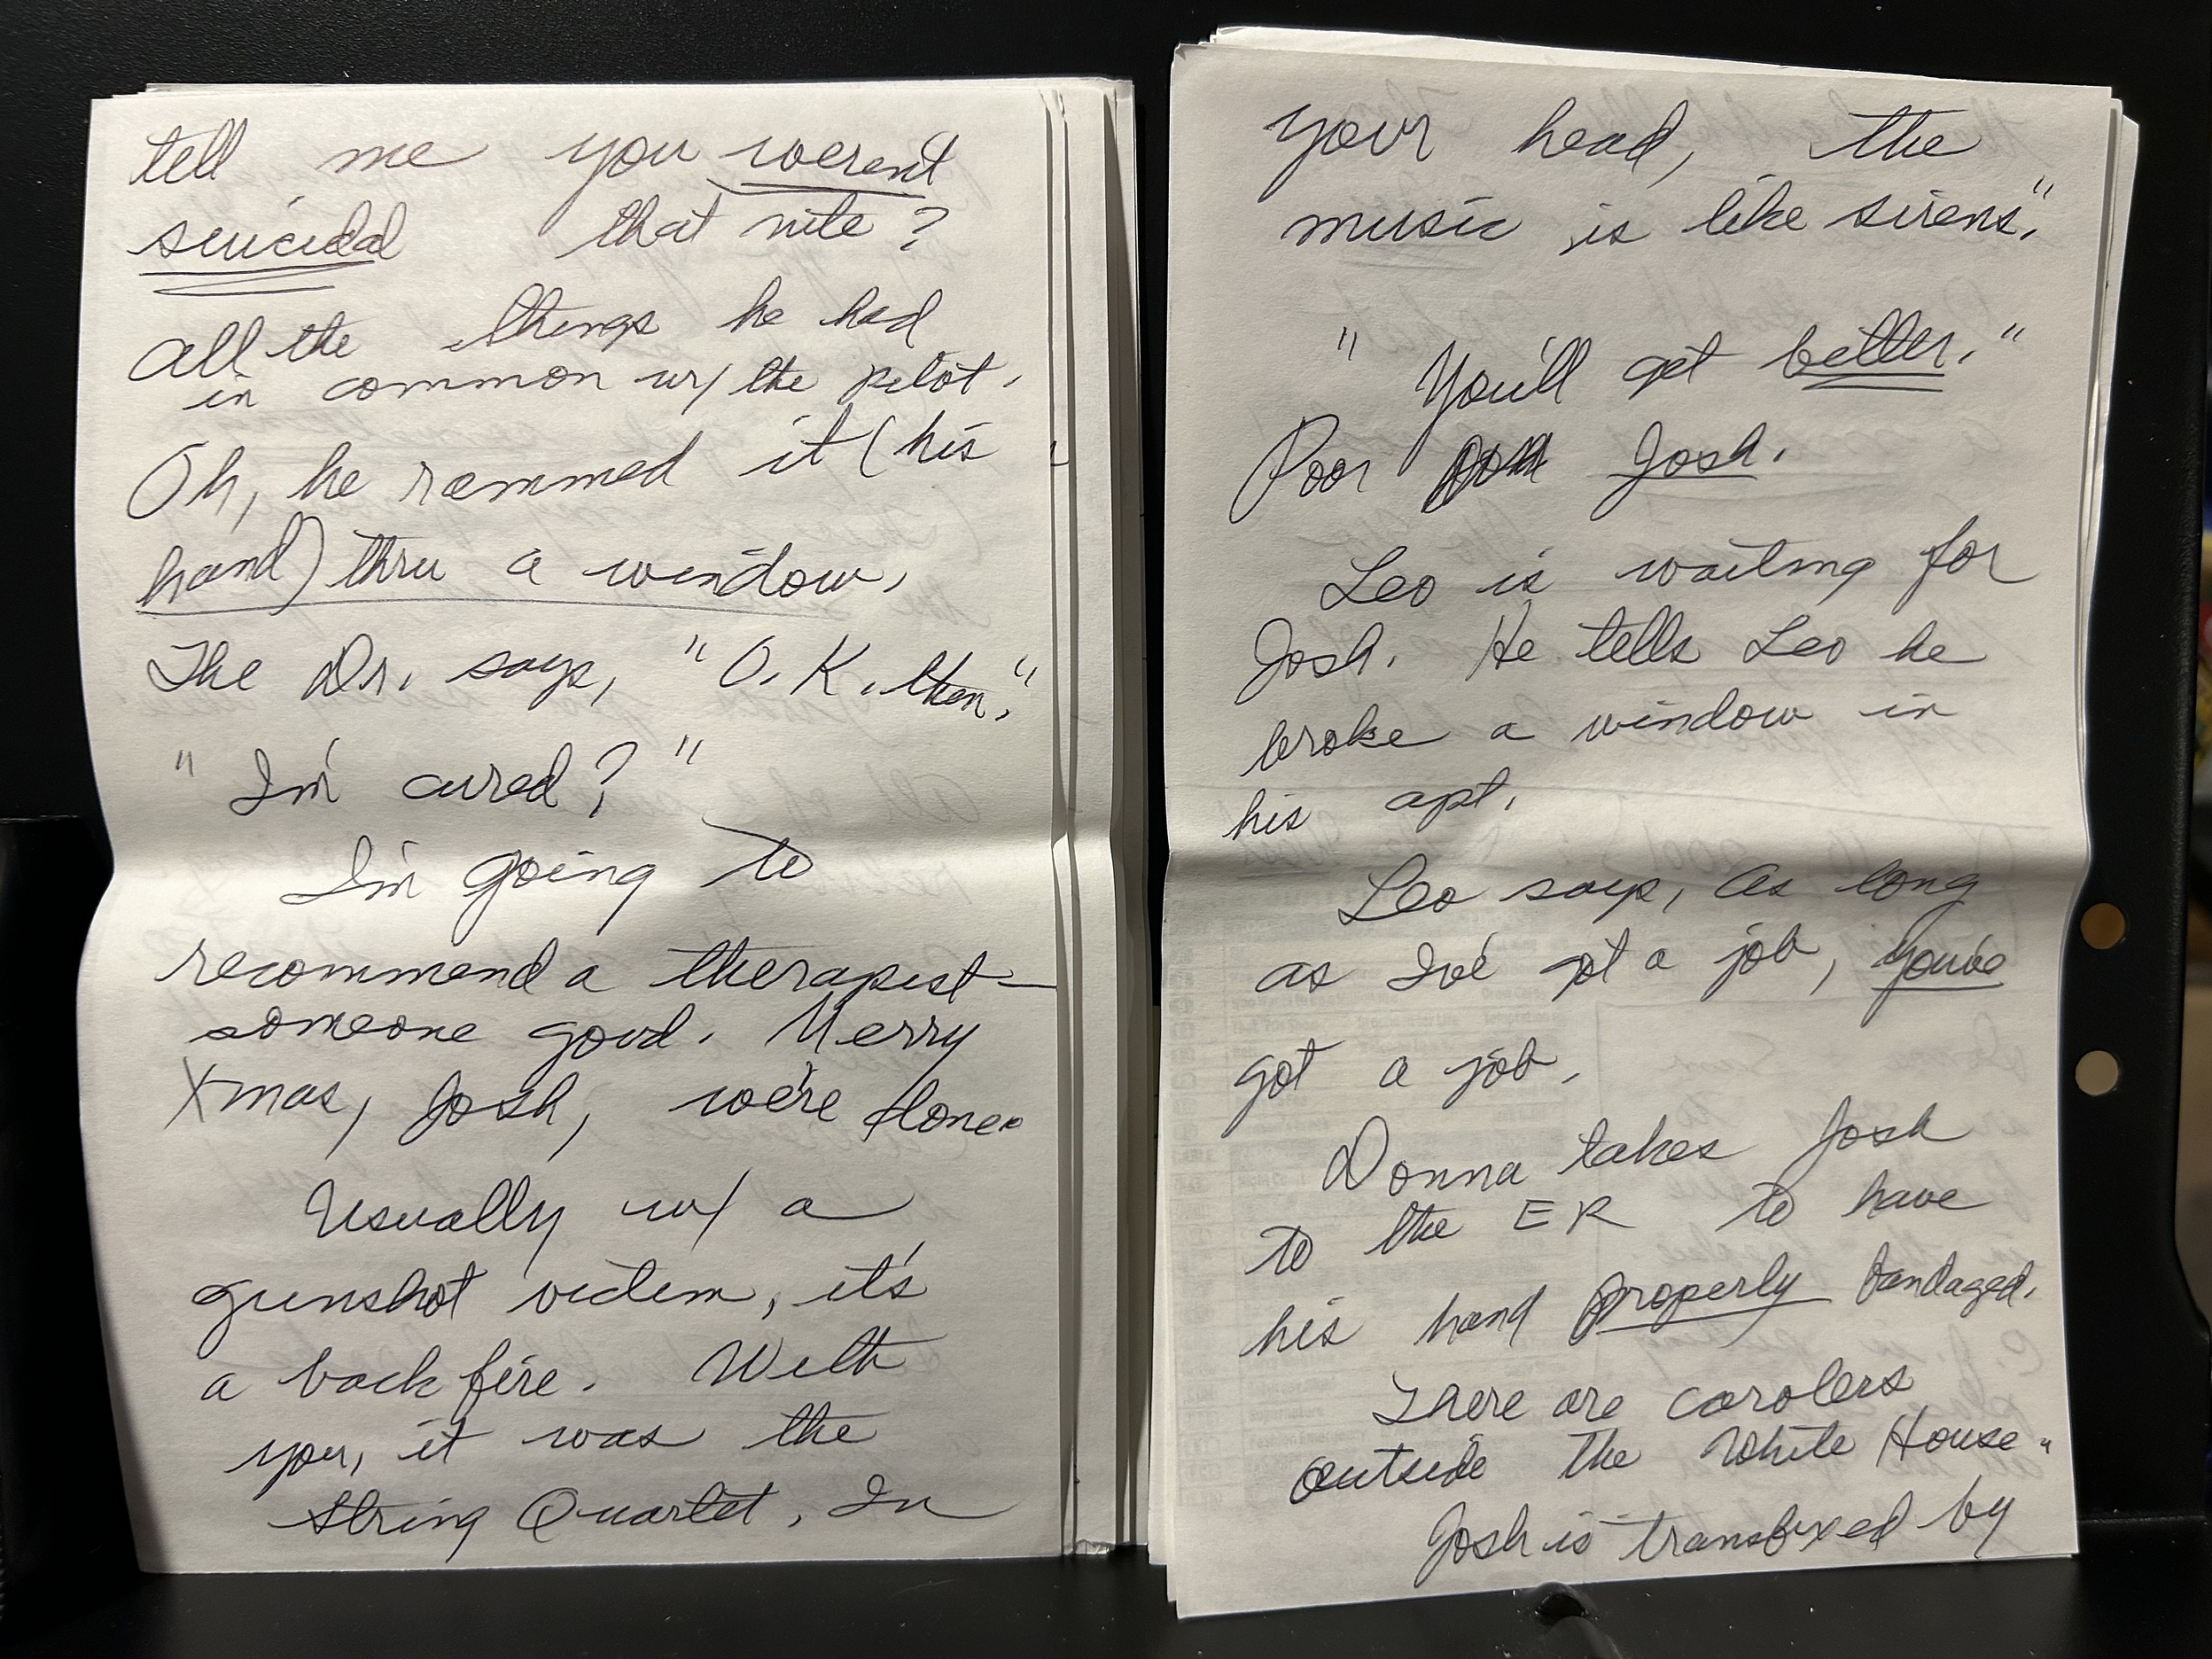 tell me you weren't
suicidal that nite?
All the things he had
in common w/ the pilot.
Oh, he rammed it (his
hand) thru a window.
The Dr. says, "O.K. then."
"I'm cured?"
I'm going to
recommend a therapist—
someone good. Merry
Xmas, Josh, we're done.
Usually w/ a
gunshot victim, it's
a back fire. With
you, it was the
String Quartet. In
your head, the
music is like sirens."
"You'll get better."
Poor Josh.
Leo is waiting for
Josh. He tells Leo he
broke a window in
his apt.
Leo says, as long
as I've got a job, you've
got a job.
Donna takes Josh
to the ER to have
his hand properly bandaged.
There are carolers
outside the White House.
Josh is transfixed by